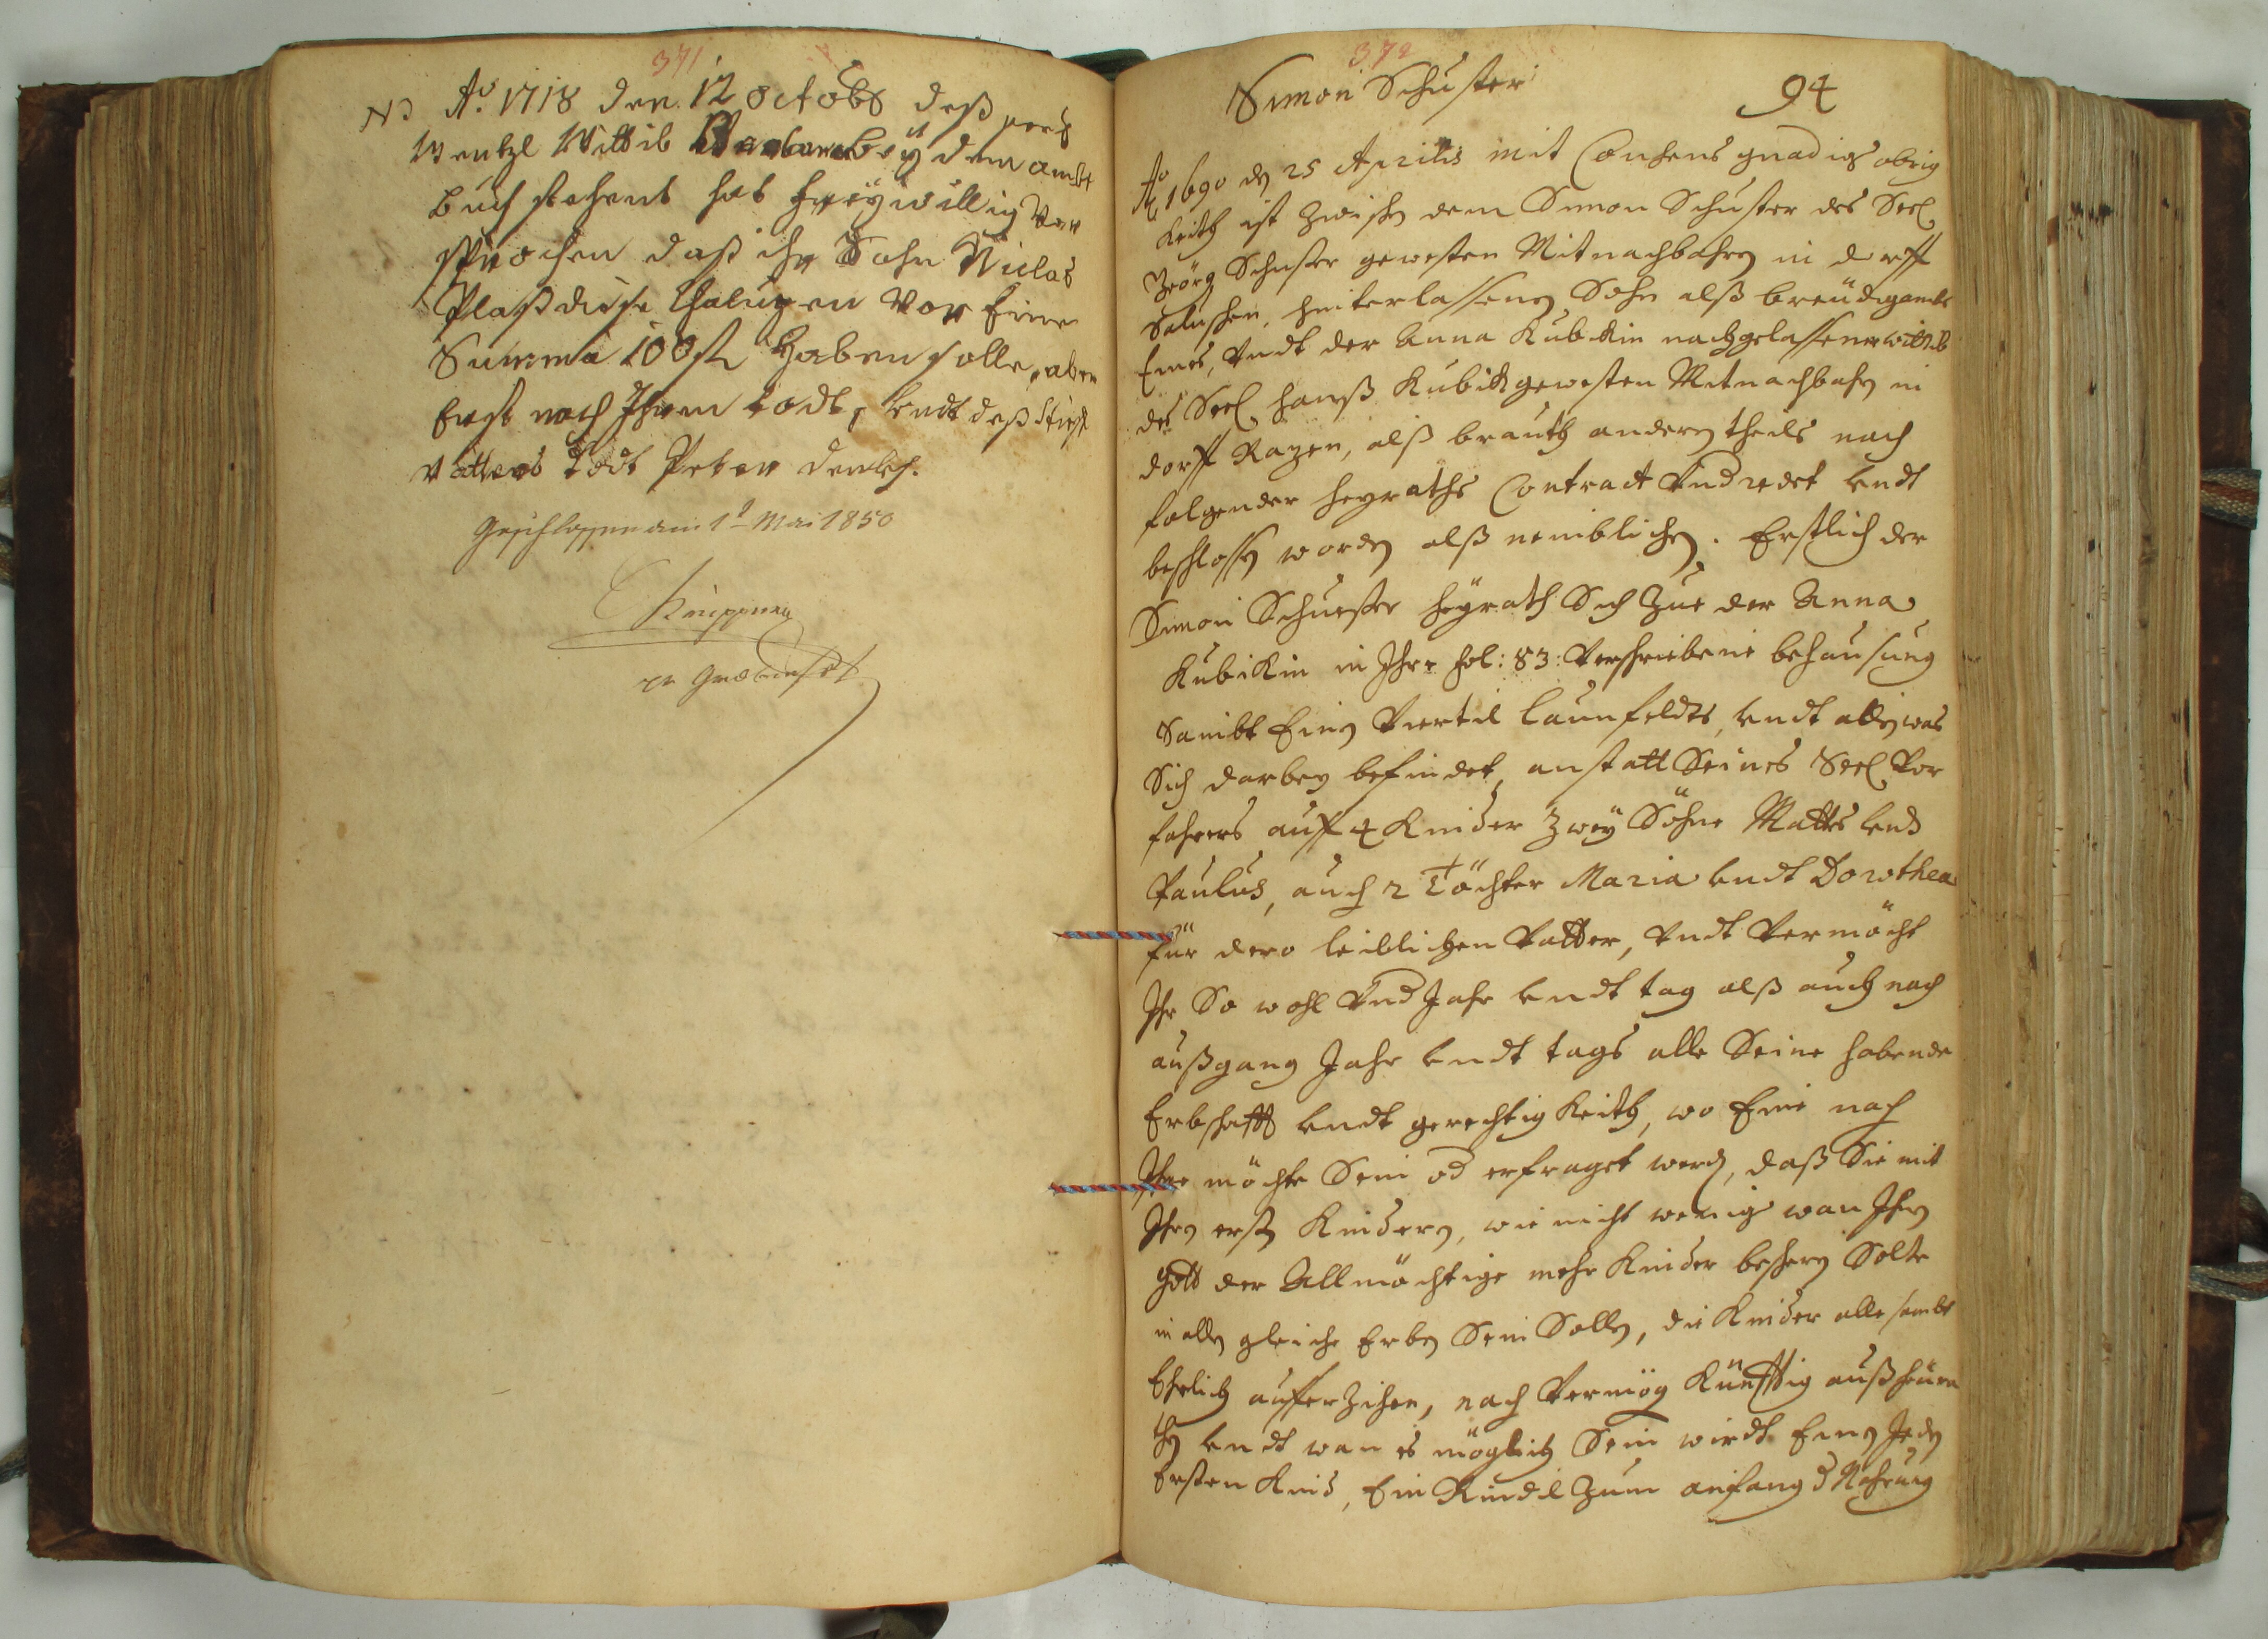 371
NB Aō. 1718 den. 12 octobs deß
Wentzl Wittib beÿ dem ambt
buch stehent hat freÿwillig ver
sprochen daß ihr Sohn Niclas
Plaß diese Chalupen vor Eine
Summa 100 fl haben solle, aber
Erst nach Ihrem todt, undt deß Stief
Vatters Todt Peter
Geschlossen am 1t Mai 1850
372
Simon Schuster
94
Aō 1690 dn 25 Aprilis mit Consens gnadigs obrig
keith ist zwischn dem Simon Schuster des Seel
Geörg Schuster gewesten Mitnachbahrn in dorff
hinterlassenen Sohn alß breüdigambs
Eines, Undt der Anna Kubikin nachgelassener wittib
des Seel hanß Kubik gewesten Mitnachbahrn in
dorff Razen, alß brauth andern theils nach
folgender heyraths Contract Undredet undt
beschlossn worden alß nemblichen. Erstlich der
Simon Schuster heÿrath Sich Zue der Anna
Kubikin in Ihre fol: 83: Verschriebene behausung
Sambt Einen Viertel Launfeldts, undt allen was
Sich darbey befindet, anstatt Seines Seel. Vor
fahrers auff 4 Kinder Zweÿ Söhne Mattes und
Paulus, auch 2 Töchter Maria undt Dorothea
für dero leiblichen Vatter, Undt Vermächt
Ihr So wohl Und Jahr undt tag alß auch nach
außgang Jahr undt tags alle Seine habende
Erbschafft undt gerechtigkeith, wo Eine nach
Ihme möchte Sein od erfraget werdn, daß Sie mit
Ihrn erstn Kindern, wie nicht wenig wan Ihn
Gott der Allmächtige mehr Kinder beschern Solte
in alln gleiche Erbn Sein Solln, die Kinder alle sambt
Ehrlich aufferzihen, nach Vermög Künfftig außheüra
thn undt wan es möglich Sein wirdt Einen Jedn
Ersten Kind, Ein Rindl zum anfang d Nahrung